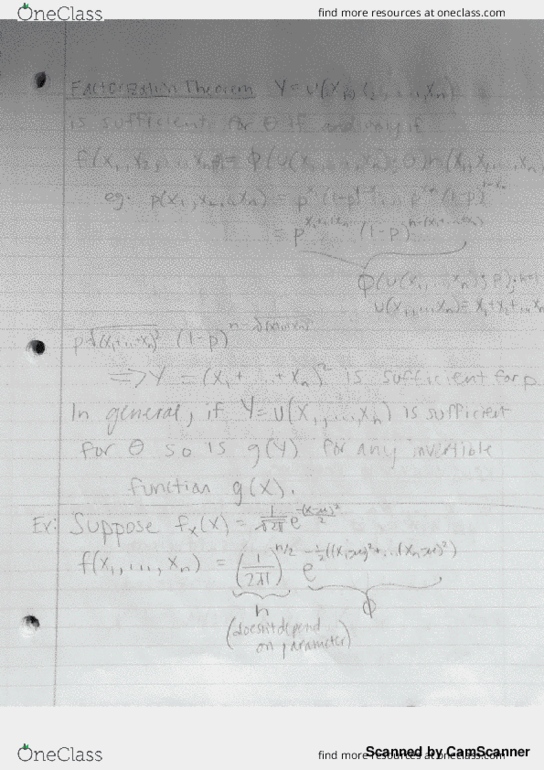 OneClass
find more resources at oneclass.com
Factorization Theorem Y=u(X1, X2, ..., Xn)
is sufficient for θ if and only if
f(x1, x2, ... xn) = Φ(u(x1, ..., xn); θ)h(x1, x2, ..., xn)
eg: p(x1, x2, ..., xn) = p^x1 (1-p)^1-x1 ... p^xn (1-p)^1-xn
= p^x1+...+xn (1-p)^n-(x1+...+xn)
Φ(u(x1, ..., xn); p); h=1
u(x1, ..., xn) = x1+x2+...xn
p^√(x1+...+xn)² (1-p)^n-√(x1+...+xn)²
=> Y = (X1 + ... + Xn)² is sufficient for p.
In general, if Y=u(X1, ..., Xn) is sufficient
for θ so is g(Y) for any invertible
function g(x).
Ex: Suppose fx(x) = 1/√2π e^-(x-μ)²/2
f(x1, ..., xn) = (1/2π)^n/2 e^-½((x1-μ)²+...(xn-μ)²)
h Φ
(doesn't depend
on parameter)
OneClass
find more resources at oneclass.com
Scanned by CamScanner